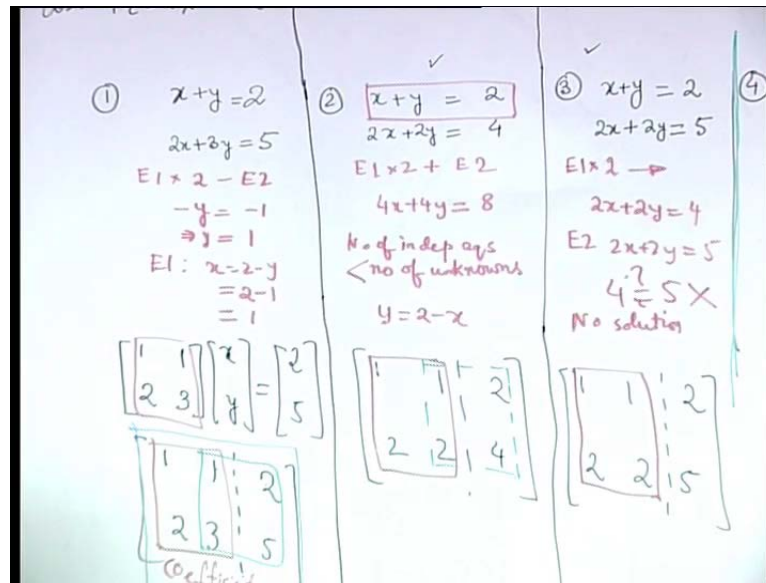 ①
x+y=2
2x+3y=5
E1×2 - E2
-y= -1
⇒y= 1
E1: x=2-y
=2-1
=1
[1 1
2 3] [x
y] = [2
5]
[1 1 ¦ 2
2 3 ¦ 5]
✓
②
x+y = 2
2x+2y= 4
E1×2 + E2
4x+4y= 8
No of indep eqs
<no of unknowns
y=2-x
[1 1 ¦ 2
2 2 ¦ 4]
✓
③
x+y = 2
2x+2y=5
E1×2 →
2x+2y=4
E2 2x+2y=5
4≟5 ×
No solution
[1 1 ¦ 2
2 2 ¦ 5]
④